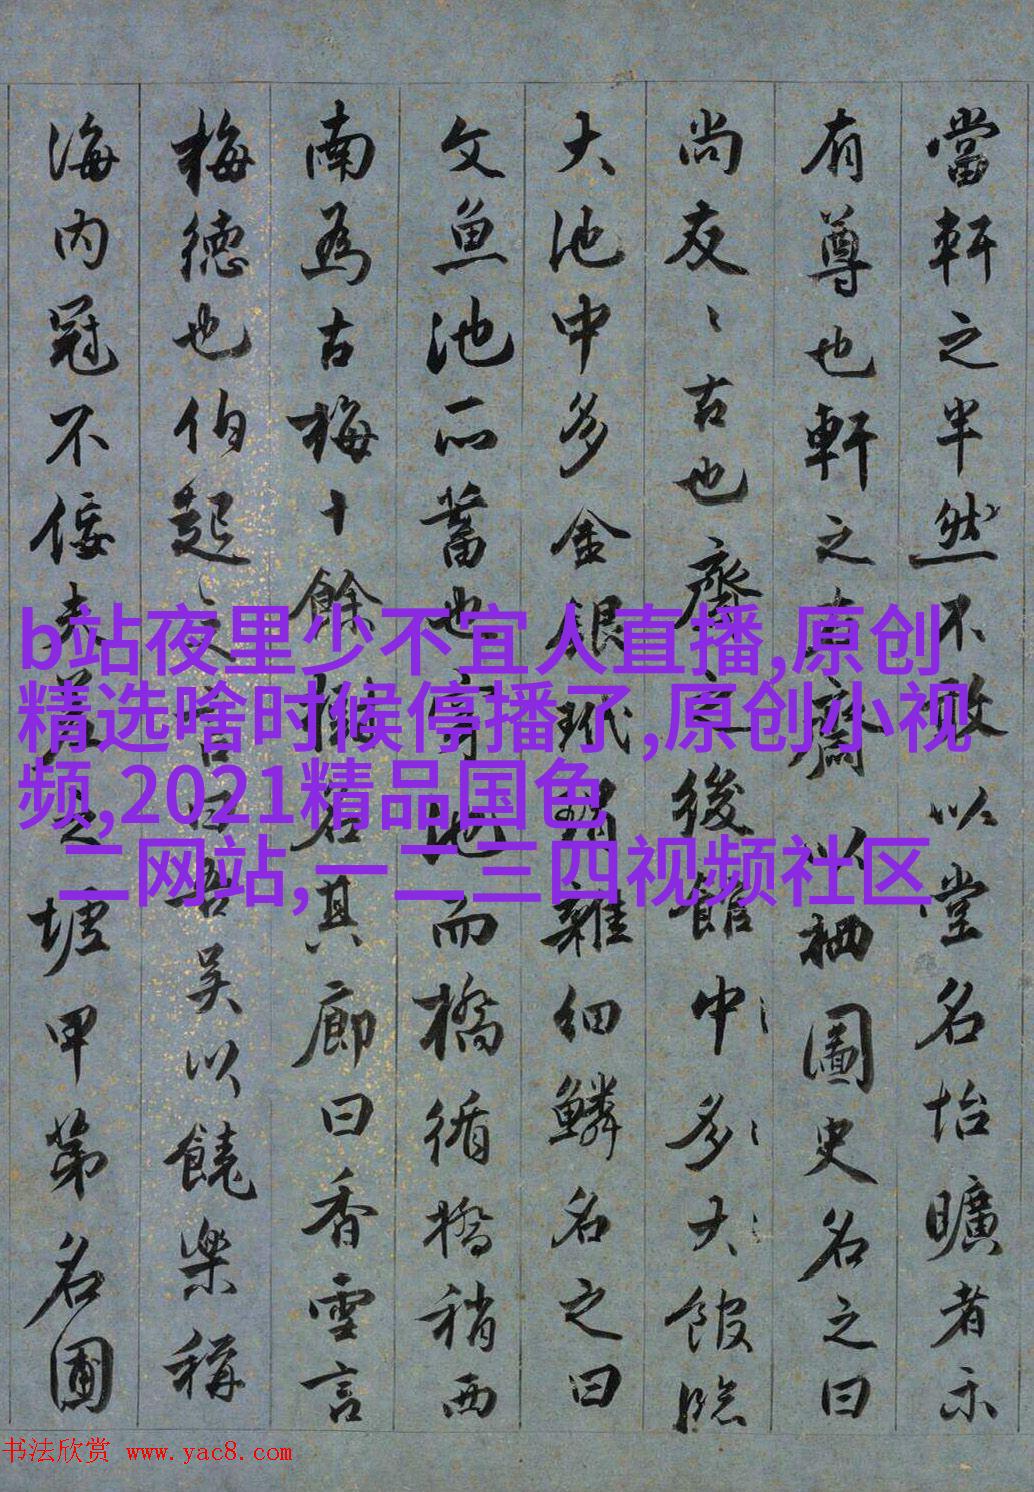 當軒之半然不敢以堂名怡曠者示
有尊也軒之齋以栖圖史名之曰
尚友〻古也齋之後館中多大館臨
大池中多金銀玳瑁雜細鱗名之曰
文魚池所蓄也池而橋循橋稍西
南為古梅十餘名其廊曰香雪言
梅德也伯起之言曰吾吳以饒樂稱
海內冠不佞夫之甲第名圃
b站夜里少不宜人直播,原创
精选啥时候停播了,原创小视
频,2021精品国色
二网站,一二三四视频社区
书法欣赏 www.yac8.com